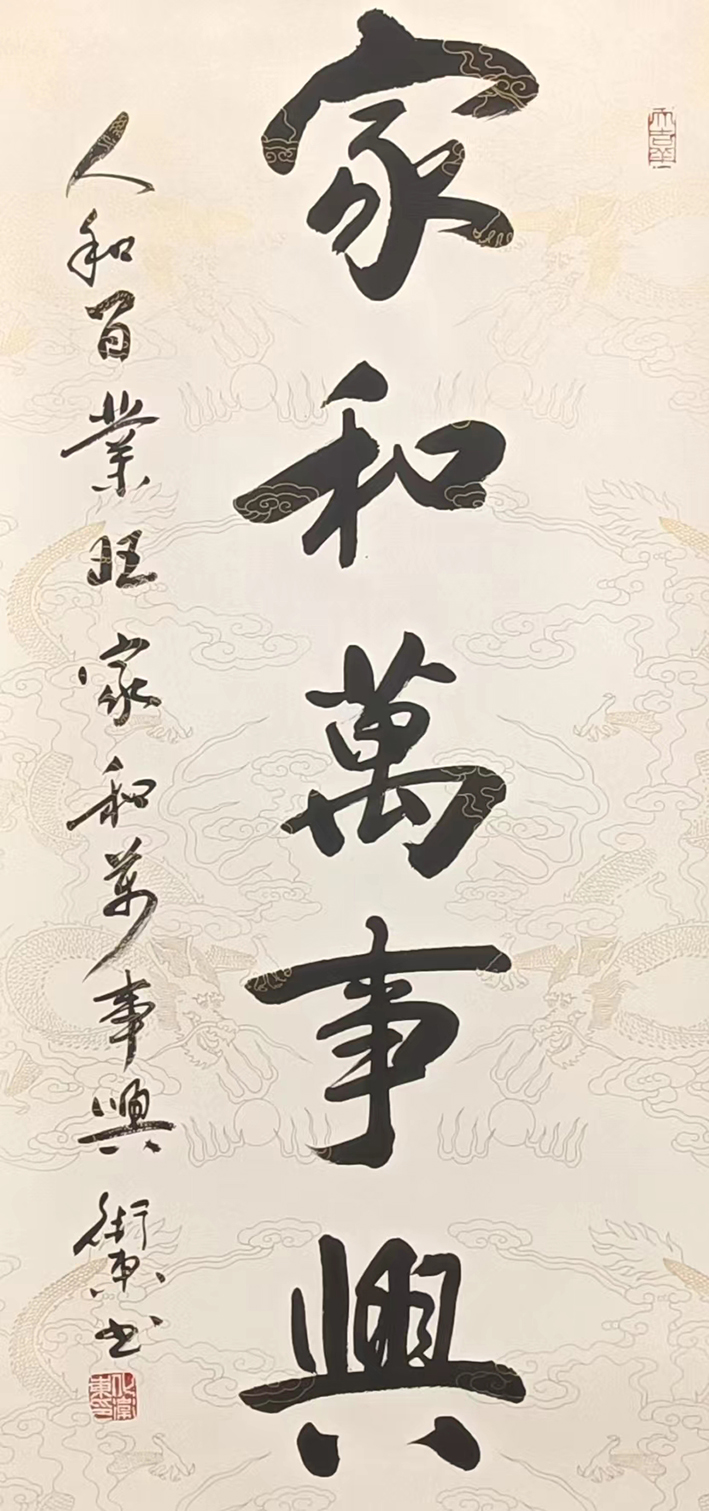 家和萬事興
人和百業旺家和萬事興 衛東书